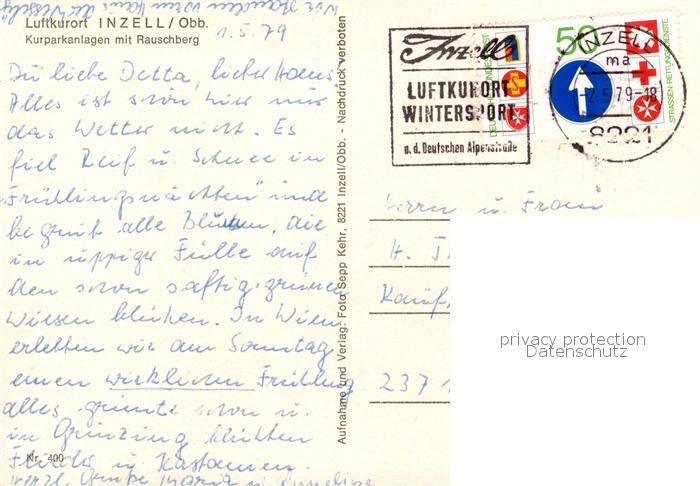 Luftkurort INZELL / Obb.
Kurparkanlagen mit Rauschberg
1.5.79
Du liebe Detta, lieber Hans
Alles ist schön hier nur
das Wetter nicht. Es
fiel Reif u. Schnee in
"Frühlingsnächten" und
begräbt alle Blüten, die
in üppiger Fülle auf
den schon saftig-grünen
Wiesen blühen. In Wien
erlebten wir am Sonntag
einen wirklichen Frühling
alles grünte schon u.
in Grinzing blühten
Flieder u. Kastanien.
Herzl. Grüße Maria u. Anneliese
Nr. 400
Aufnahme und Verlag: Foto Sepp Kehr, 8221 Inzell/Obb. - Nachdruck verboten
Inzell
LUFTKURORT
WINTERSPORT
a.d. Deutschen Alpenstraße
DEUTSCHE BUNDESPOST
50
STRASSEN-RETTUNGSDIENSTE
INZELL
ma
-2.5.79-18
8221
Herrn u. Frau
H.
237
privacy protection
Datenschutz